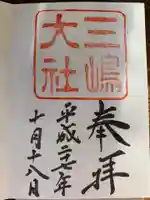 奉拝
三嶋
大社
平成二七年
十月十八日